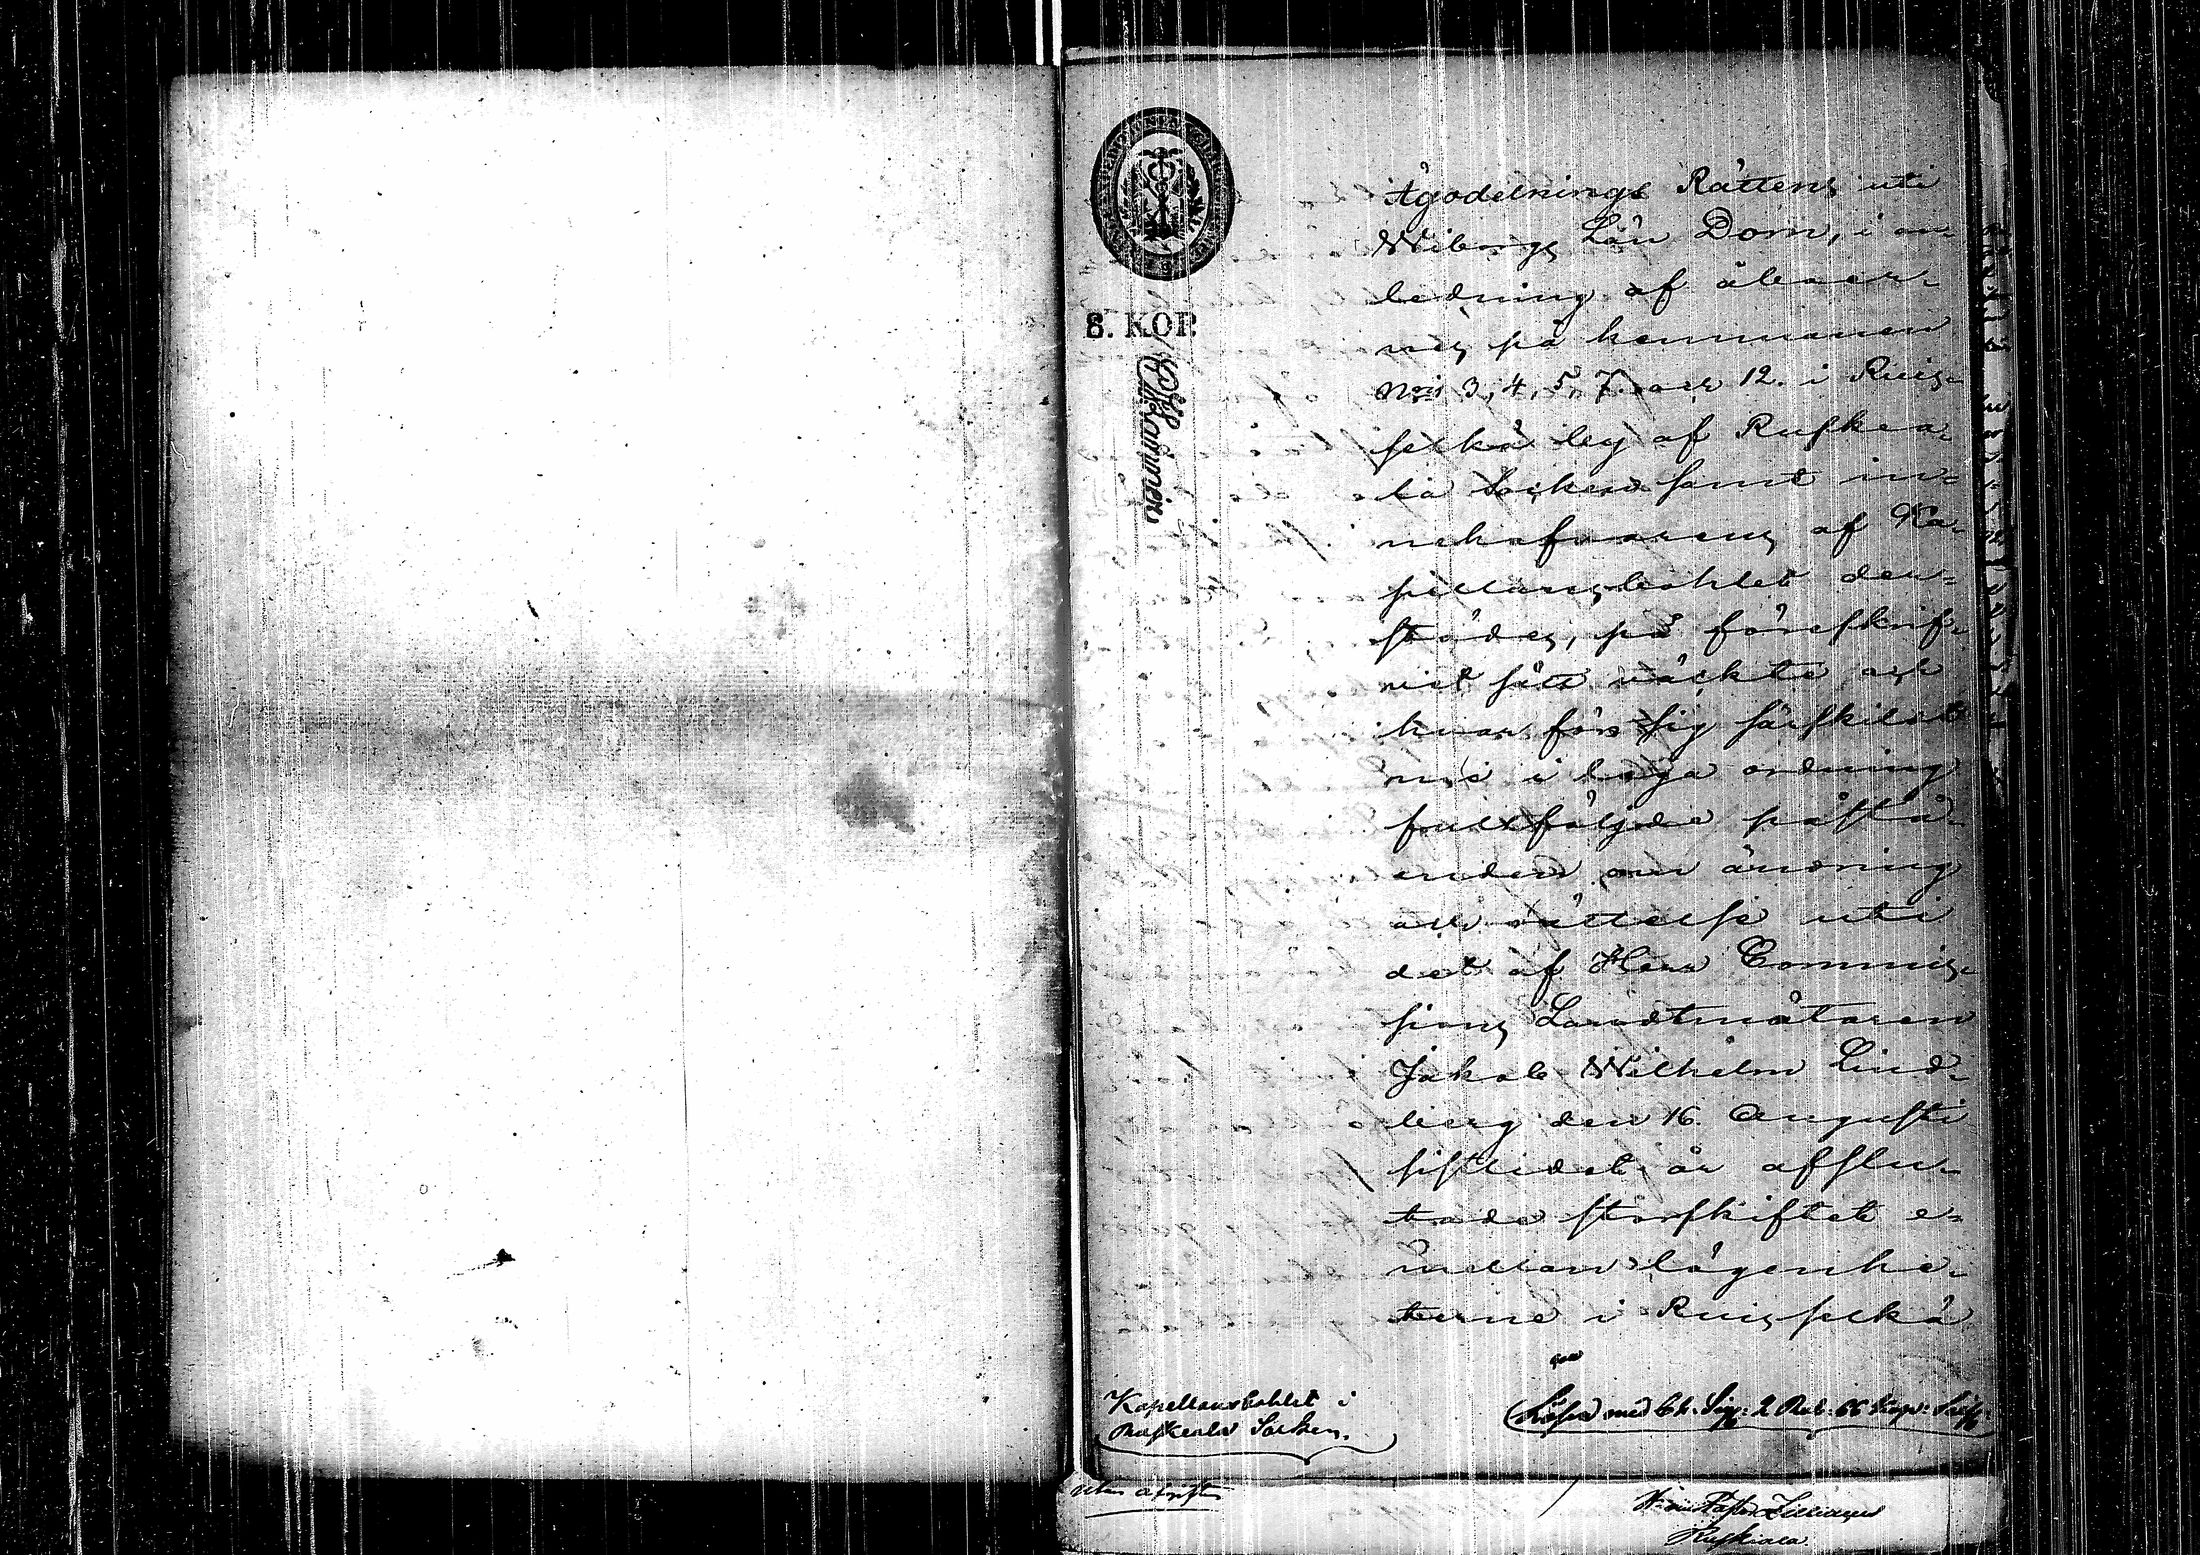 8. KOP.
Ägodelnings Rättens uti
Wiborgs Län Dom, i an-
ledning af åboer-
nes på hemmanen
N:ris 3, 4, 5, 7. och 12. i Ruis-
selkä by af Ruskea-
la Socken samt in-
nehafvarens af Ka-
pellansbohlet der-
städes, på föreskrif-
vet sätt väckte och
hvar för sig särskildt
i laga ordning
fullföljde påstå-
enden om ändring
och rättelse uti
det af Herr Commis-
sions Landtmätaren
Jakob Wilhelm Lind-
berg den 16. Augusti
sistlidet år afslu-
tade storskiftet e-
mellan lägenhe-
terne i Ruisselkä
Kapellansbohlet i
Ruskeala Socken.
Löses med Ch. Sig: 2 Rub. 66 Kop: Silf:
utan afgift
Ruskiala